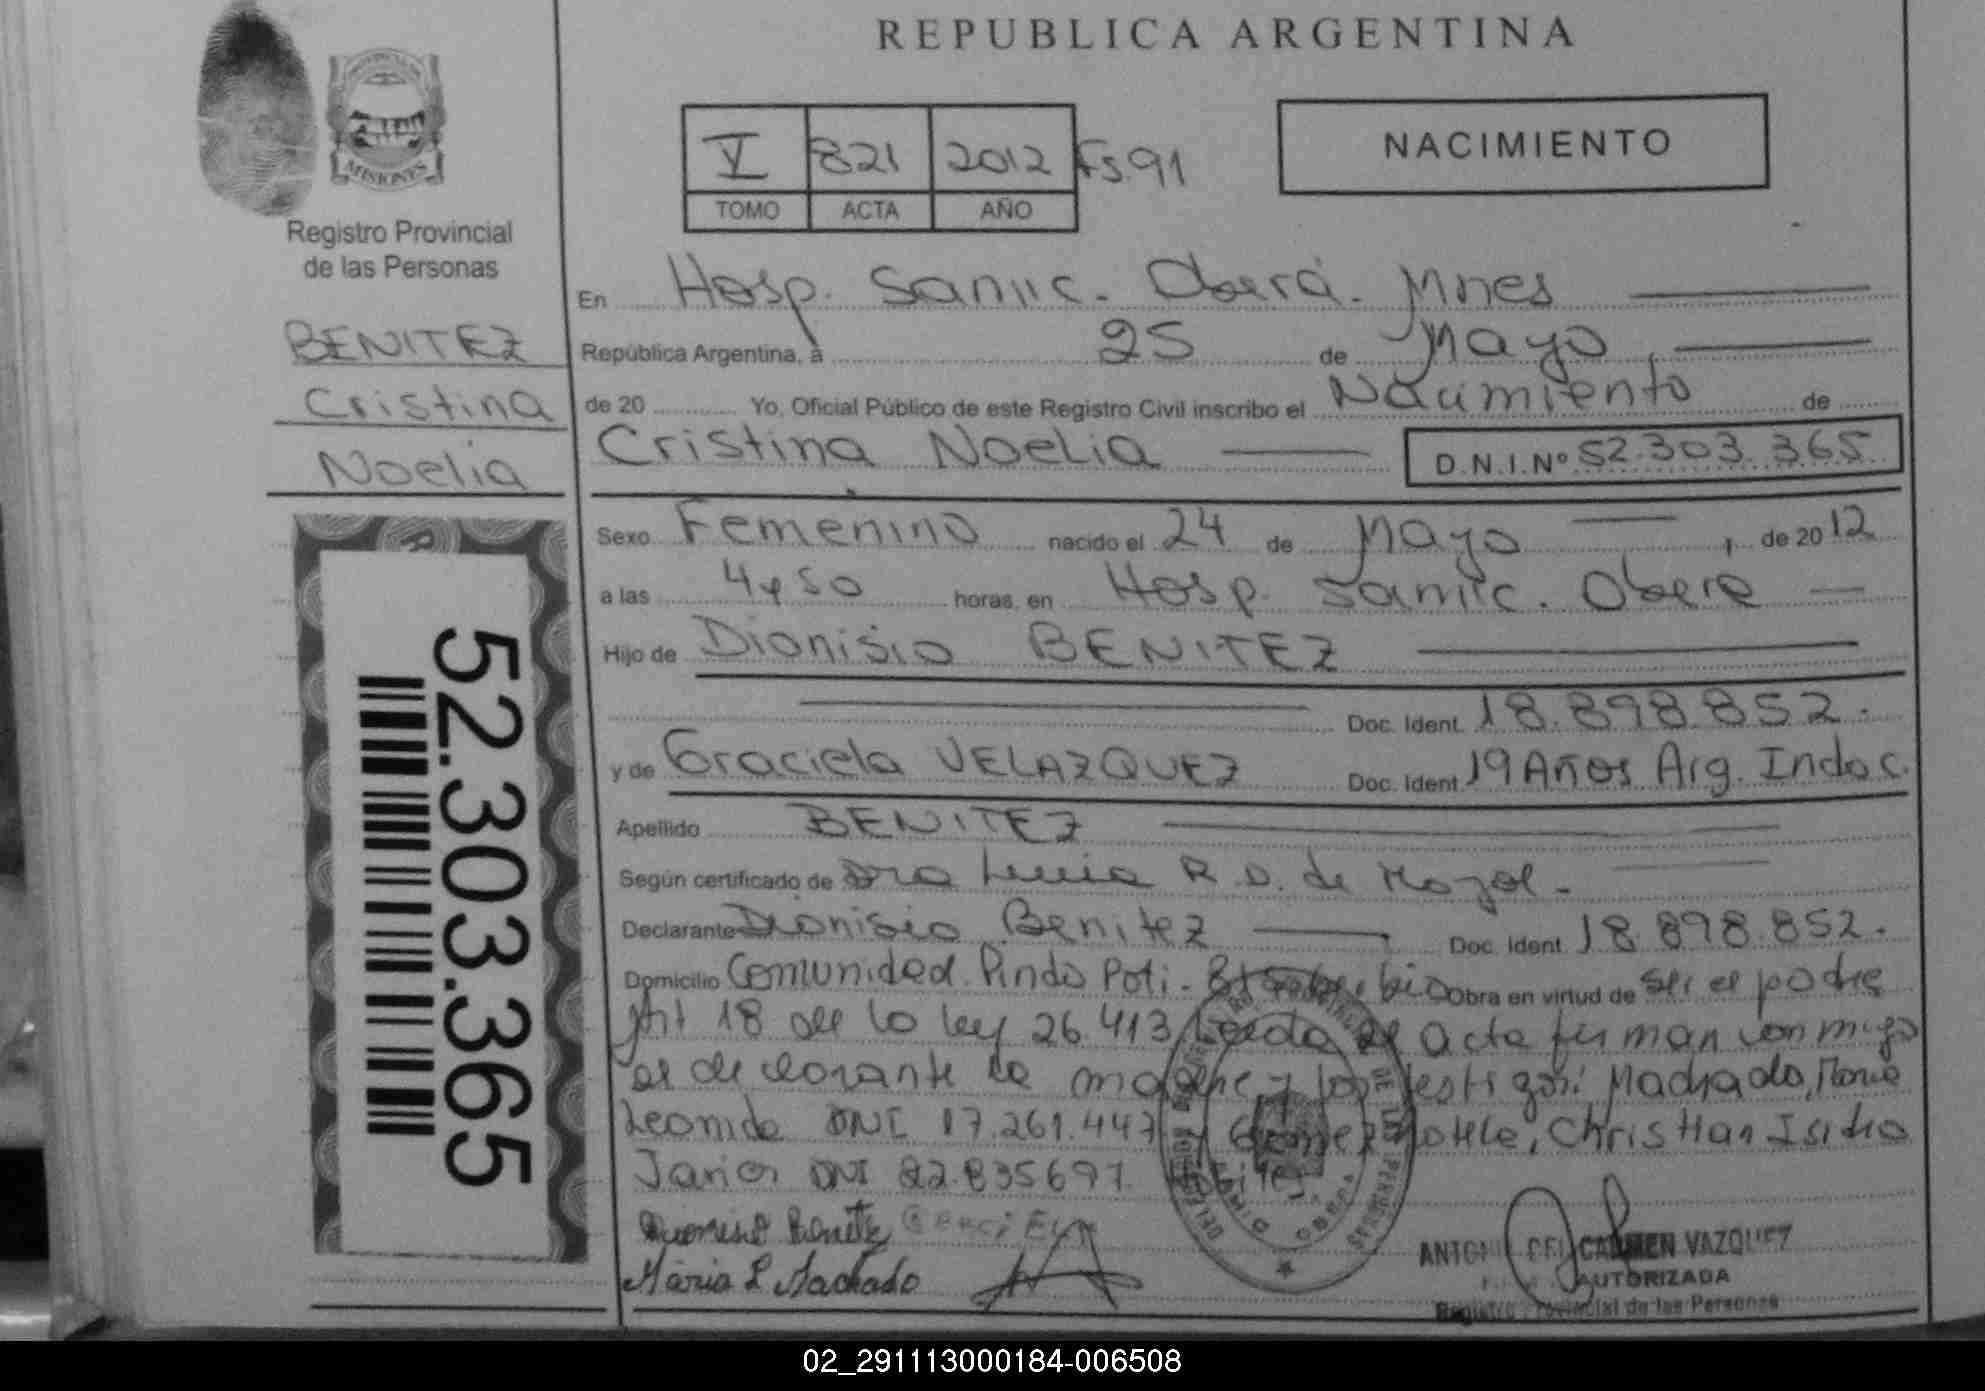 REPUBLICA ARGENTINA
MISIONES
Registro Provincial
de las Personas
BENITEZ
Cristina
Noelia
52.303.365
V 821 2012 Fs.91
TOMO ACTA AÑO
NACIMIENTO
En Hosp. Samic. Oberá. Mnes
República Argentina, a 25 de Mayo,
de 20 Yo, Oficial Público de este Registro Civil inscribo el Nacimiento de
Cristina Noelia D.N.I.Nº 52.303.365
Sexo Femenino nacido el 24 de Mayo, de 2012
a las 4y50 horas, en Hosp. Samic. Oberá
Hijo de Dionisio BENITEZ
Doc. Ident. 18.898.852.
y de Graciela VELAZQUEZ Doc. Ident. 19 Años Arg. Indoc.
Apellido BENITEZ
Según certificado de Dra Lucia R.D. de
Declarante Dionisio Benitez, Doc. Ident. 18.898.852.
Domicilio Comunidad Pindo Poti. Obra en virtud de ser el padre
Art 18 de la ley 26.413 Leida el acta firman conmigo
el declarante la madre y los testigos: Machado, Maria
Leonida DNI 17.261.447 y Gomez Christian Isidro
Javier DNI 22.835697.
Benitez
Maria L Machado
DEL CARMEN VAZQUEZ
AUTORIZADA
Registro Provincial de las Personas
02_291113000184-006508